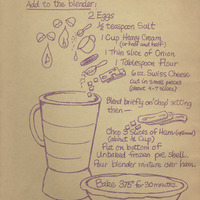 Add to the blender:
2 Eggs
½ teaspoon Salt
1 Cup Heavy Cream
(or half and half)
1 Thin slice of Onion
1 Tablespoon Flour
6 oz. Swiss Cheese
cut in small pieces
(about 6-7 slices)
Blend briefly on 'chop' setting
then —
Chop 3 slices of Ham (optional)
(about ½ Cup)
Put on bottom of
Unbaked frozen pie shell.
Pour blender mixture over ham.
Bake 375° for 30 minutes.